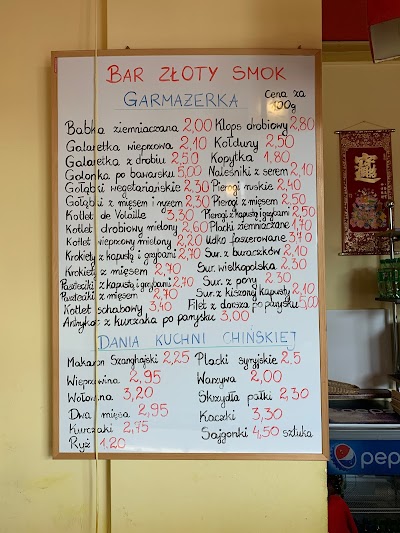 BAR ZŁOTY SMOK
GARMAZERKA
Cena za
100g
Babka ziemniaczana 2,00
Galaretka wieprzowa 2.10
Galaretka z drobiu 2.50
Golonka po bawarsku 5,00
Gołąbki wegetariańskie 2,30
Gołąbki z mięsem i ryżem 2.30
Kotlet de Volaille 3,30
Kotlet drobiowy mielony 2,60
Kotlet wieprzowy mielony 2,20
Krokiety z kapustą i grzybami 2.70
Krokiety z mięsem 2,70
Paszteciki z kapustą i grzybami 2.70
Paszteciki z mięsem 2.70
Kotlet schabowy 3,40
Antrykot z kurczaka po parysku 3,00
Klops drobiowy 2,80
Kołduny 2.50
Kopytka 1,80
Naleśniki z serem 2.10
Pierogi ruskie 2.40
Pierogi z mięsem 2.50
Pierogi z kapustą i grzybami 2.50
Placki ziemniaczane 1,70
Udko faszerowane 3.70
Sur. z buraczków 2.10
Sur. wielkopolska 2.30
Sur. z pory 2.30
Sur. z kiszonej kapusty 2,10
Filet z dorsza po parysku 5,00
DANIA KUCHNI CHIŃSKIEJ
Makaron Szanghajski 2,25
Wieprzowina 2,95
Wołowina 3,20
Dwa mięsa 2,95
Kurczaki 2,75
Ryż 1.20
Placki syryjskie 2.5
Warzywa 2,00
Skrzydła pałki 2,30
Kaczki 3,30
Sajgonki 4,50 sztuka
pep